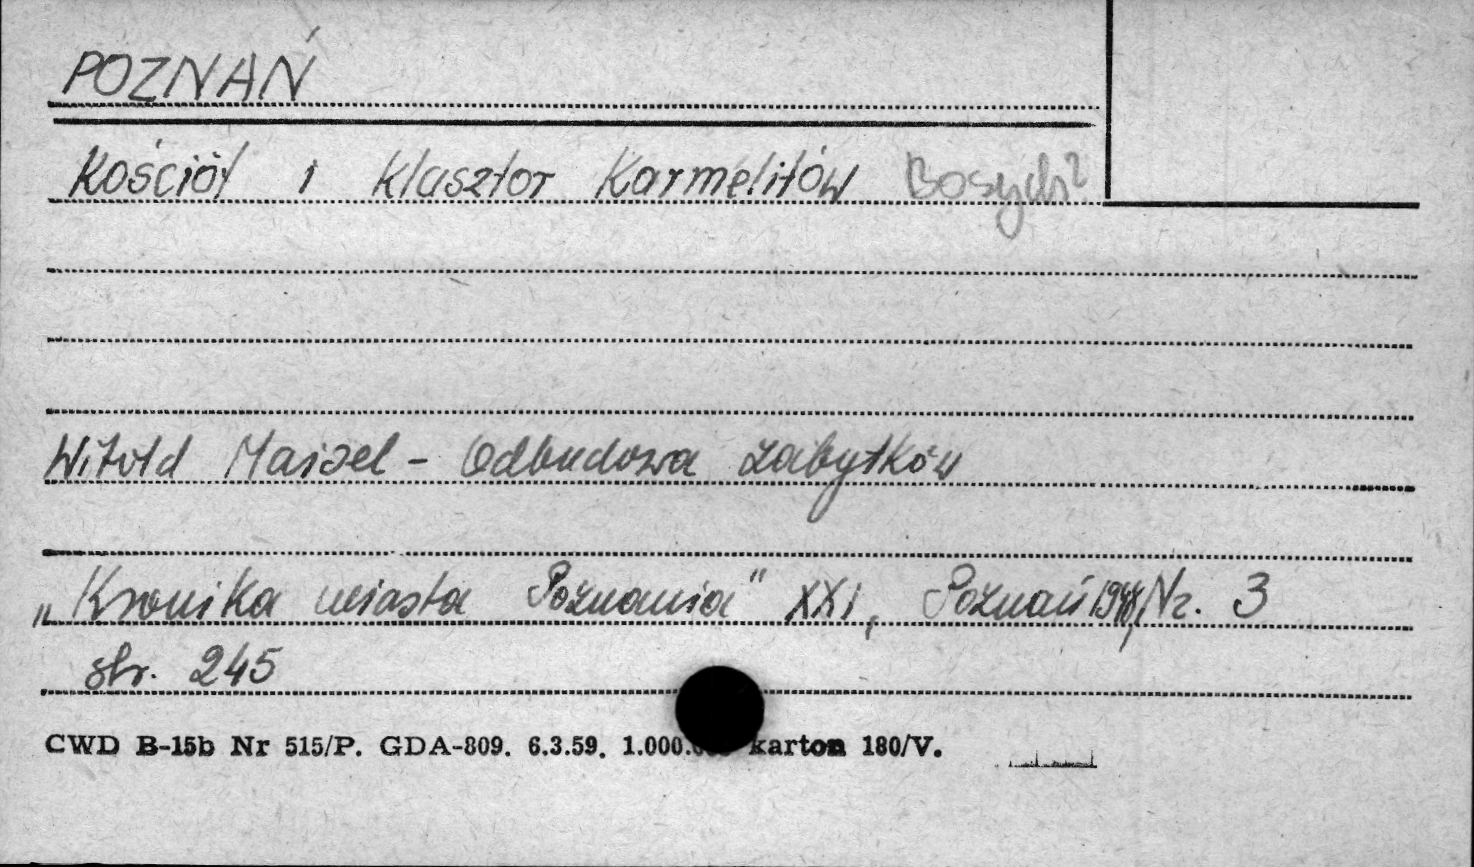 POZNAŃ
Kościół i Klasztor Karmelitów Bosych?
Witold Maisel - Odbudowa zabytków
„Kronika miasta Poznania" XXI, Poznań 1948, Nr. 3
str. 245
CWD B-15b Nr 515/P. GDA-809. 6.3.59. 1.000. karton 180/V.